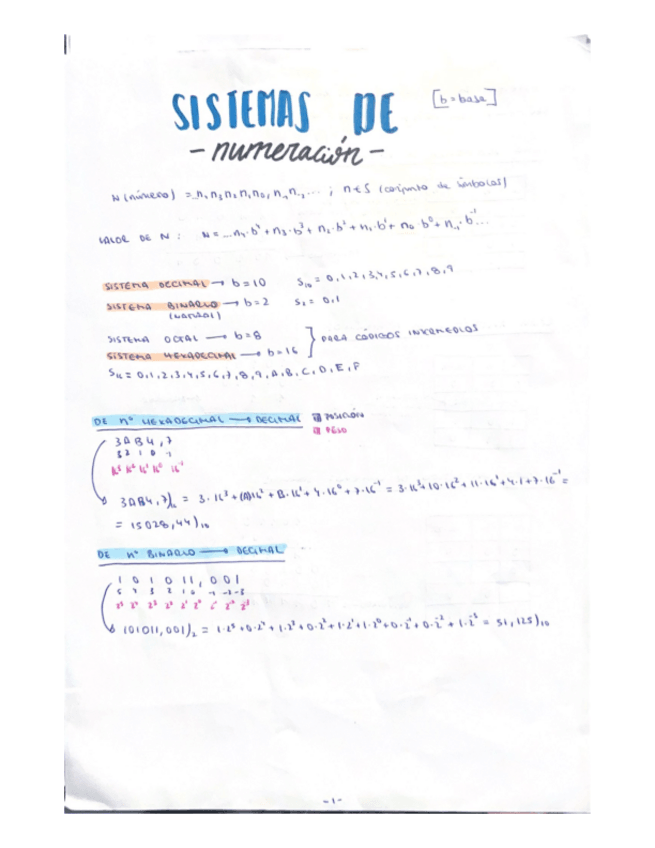 SISTEMAS DE [b = base]
- numeración -
N (número) = n₄ n₃ n₂ n₁ n₀, n₋₁ n₋₂ ... ; n ∈ S (conjunto de símbolos)
VALOR DE N : N = ... n₄·b⁴ + n₃·b³ + n₂·b² + n₁·b¹ + n₀·b⁰ + n₋₁·b⁻¹ ...
SISTEMA DECIMAL → b = 10 S₁₀ = 0,1,2,3,4,5,6,7,8,9
SISTEMA BINARIO → b = 2 S₂ = 0,1
(NATURAL)
SISTEMA OCTAL → b = 8
} PARA CÓDIGOS INTERMEDIOS
SISTEMA HEXADECIMAL → b = 16
S₁₆ = 0,1,2,3,4,5,6,7,8,9,A,B,C,D,E,F
DE nº HEXADECIMAL → DECIMAL POSICIÓN
PESO
3AB4,7
3 2 1 0 -1
16³ 16² 16¹ 16⁰ 16⁻¹
3AB4,7)₁₆ = 3·16³ + (A)16² + B·16¹ + 4·16⁰ + 7·16⁻¹ = 3·16³ + 10·16² + 11·16¹ + 4·1 + 7·16⁻¹ =
= 15028,44)₁₀
DE nº BINARIO → DECIMAL
1 0 1 0 11, 001
5 4 3 2 1 0 -1 -2 -3
2⁵ 2⁴ 2³ 2² 2¹ 2⁰ 2⁻² 2⁻³
101011,001)₂ = 1·2⁵ + 0·2⁴ + 1·2³ + 0·2² + 1·2¹ + 1·2⁰ + 0·2⁻¹ + 0·2⁻² + 1·2⁻³ = 51,125)₁₀
-1-